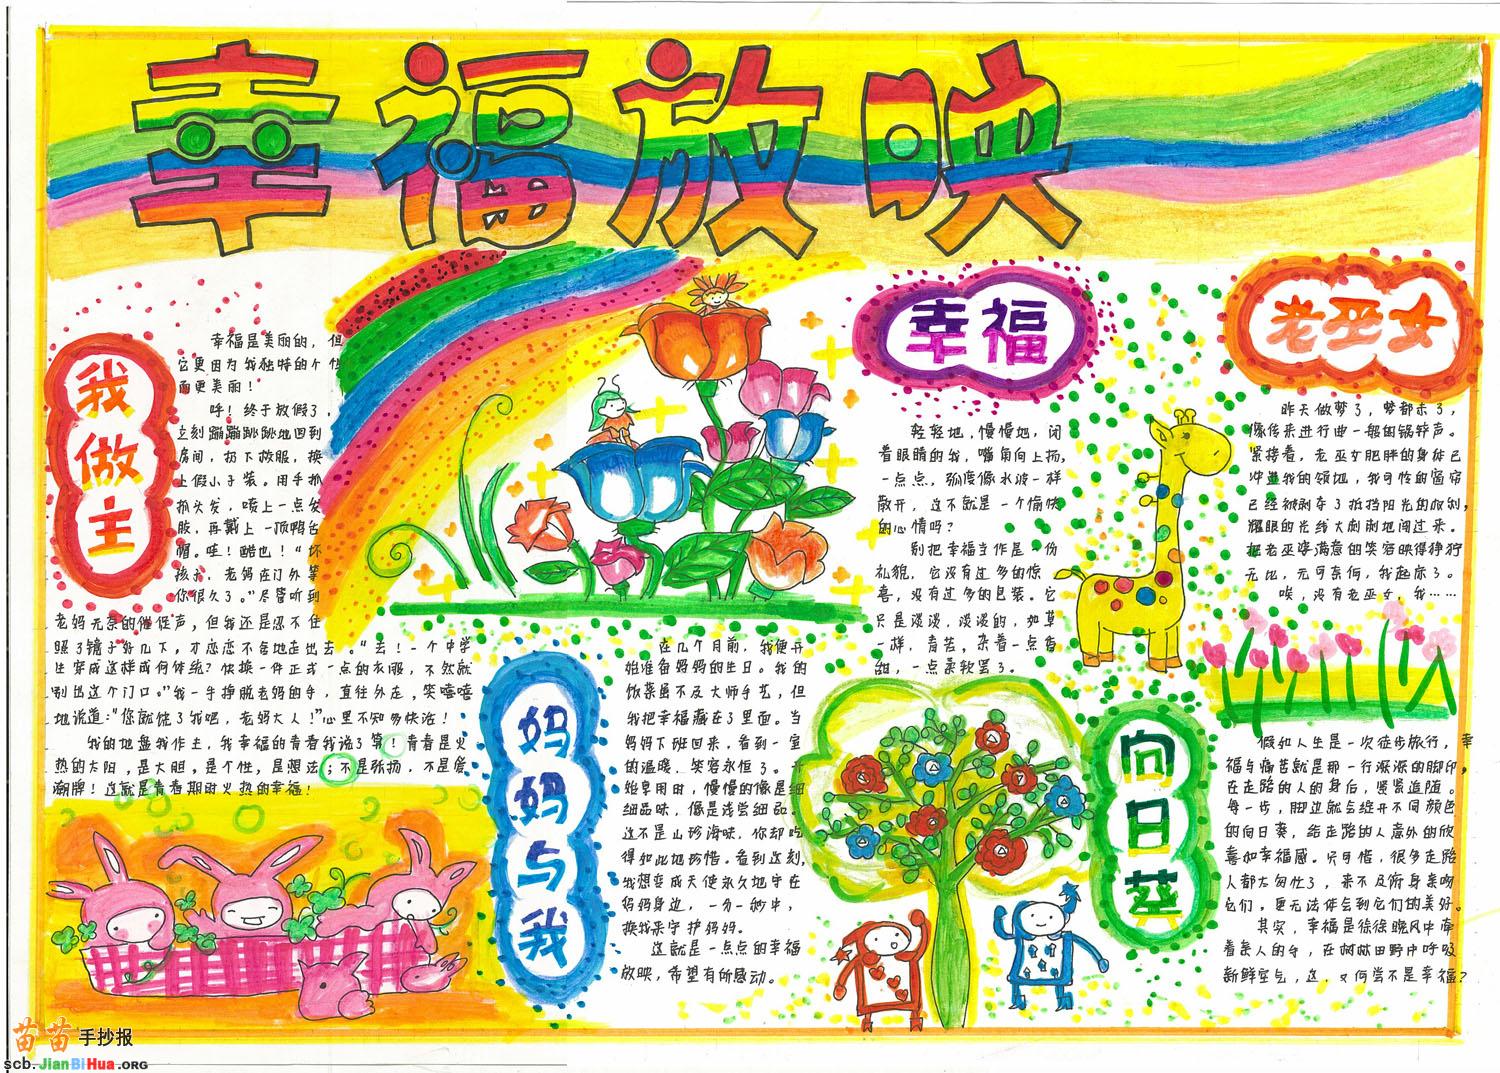 幸福放映
我做主
幸福是美丽的，但
它更因为我独特的个性
而更美丽！
呼！终于放假了，
立刻蹦蹦跳跳地回到
房间，扔下校服，换
上假小子装。用手抓
抓头发，喷上一点发
胶，再戴上一顶鸭舌
帽。哇！酷也！“坏
孩子，老妈在门外等
你很久了。”尽管听到
老妈无奈的催促声，但我还是忍不住
照了镜子好几下，才恋恋不舍地走出去。“去！一个中学
生穿成这样成何体统？快换一件正式一点的衣服，不然就
别出这个门口。”我一手挣脱老妈的手，直往外走，笑嘻嘻
地说道：“你就饶了我吧，老妈大人！”心里不知多快活！
我的地盘我作主，我幸福的青春我说了算！青春是火
热的太阳，是大胆，是个性，是想法；不是张扬，不是
潮牌！这就是青春期时火热的幸福！
妈妈与我
在几个月前，我便开
始准备妈妈的生日。我的
饭菜虽不及大师手艺，但
我把幸福藏在了里面。当
妈妈下班回来，看到一室
的温暖，笑容永恒了。
始享用时，慢慢的像是细
细品味，像是浅尝细品。
这不是山珍海味，你却吃
得如此地珍惜。看到这刻，
我想变成天使永久地守在
妈妈身边，一分一秒中，
换我来守护妈妈。
这就是一点点的幸福
放映，希望有所感动。
幸福
轻轻地，慢慢地，闭
着眼睛的我，嘴角向上扬，
一点点，弧度像水波一样
散开，这不就是一个愉快
的心情吗？
别把幸福当作是一份
礼貌，它没有过多的惊
喜，没有过多的包装。它
只是淡淡，淡淡的，如草
一样，青苦，杂着一点香
甜，一点柔软罢了。
老巫女
昨天做梦了，梦都未了，
像传来进行曲一般的锅铲声。
紧接着，老巫女肥胖的身体已
冲进我的领地，我可怜的窗帘
已经被剥夺了抵挡阳光的权利，
耀眼的光线大剌剌地闯过来。
把老巫婆满意的笑容映得狰狞
无比，无可奈何，我起床了。
唉，没有老巫女，我……
向日葵
假如人生是一次徒步旅行，幸
福与痛苦就是那一行深深的脚印，
在走路的人的身后，紧紧追随。
每一步，脚边就会绽开不同颜色
的向日葵，给走路的人意外的欣
喜和幸福感。只可惜，很多走路
人都太匆忙了，来不及俯身亲吻
它们，更无法体会到它们的美好。
其实，幸福是徐徐晚风中牵
着亲人的手，在田野中呼吸
新鲜空气，这，又何尝不是幸福？
苗苗手抄报
scb.JianBiHua.ORG